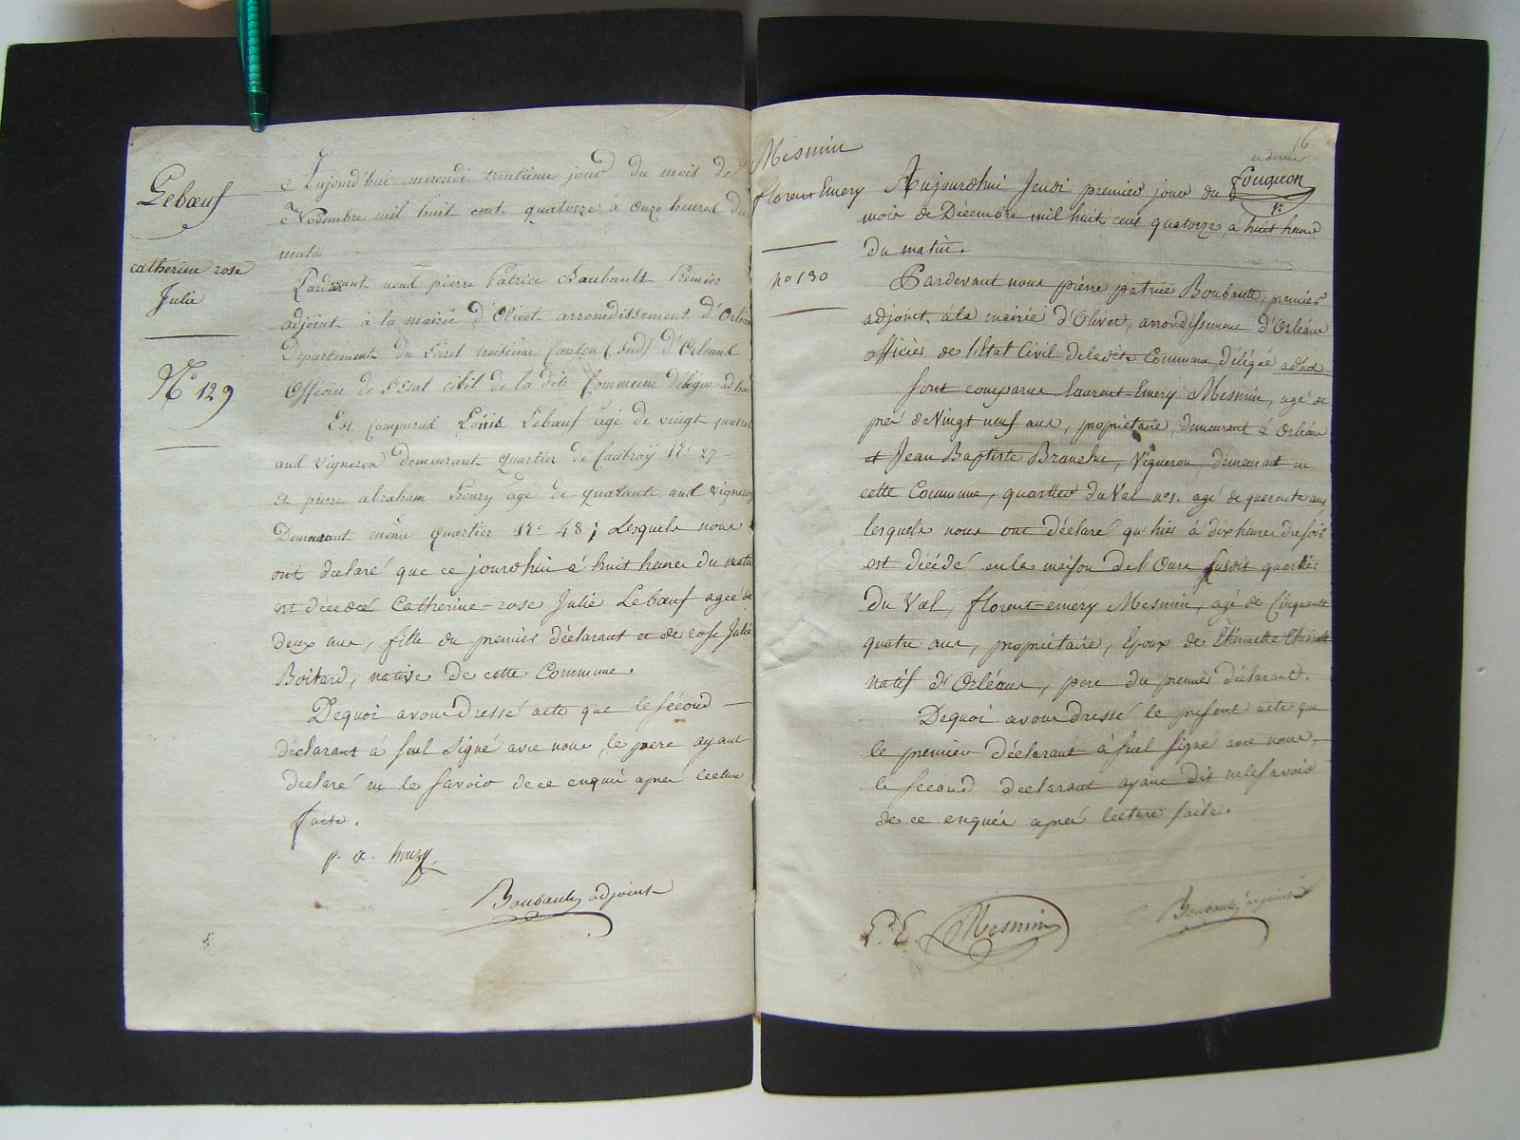 Lebœuf
catherine rose
Julie
N° 129
Aujourd'hui mercredi trentieme jour du mois de
Novembre mil huit cent quatorze à onze heures du
matin
Pardevant nous pierre Patrice Boubault Premier
adjoint à la mairie d'Olivet arrondissement d'Orléans
Département du Loiret troisieme Canton (Sud) d'Orleans
Officier de l'Etat civil de la dite Commune délégué ad hoc
Est comparus Louis Lebœuf agé de vingt quatre
ans vigneron demeurant quartier de Caubray N° 27
et pierre abraham houzy agé de quarante ans vigneron
Demeurant même quartier N° 48; Lesquels nous
ont déclaré que ce jourdhui à huit heures du matin
est décédée Catherine-rose Julie Lebœuf agée de
deux ans, fille du premier déclarant et de rose Julie
Boitard, native de cette Commune.
Dequoi avons dressé acte que le sécond
déclarant à seul signé avec nous, le pere ayant
declaré ne le savoir de ce enquis aprés lecture
faite.
p. a. houzy
Boubault adjoint
Mesmin
florent Emery
n° 130
6
Fougeron
Aujourdhui Jeudi premier jour du
mois de Décembre mil huit cent quatorze, à huit heures
du matin.
Pardevant nous pierre patrice Boubault, premier
adjoint à la mairie d'Olivet, arrondissement d'Orléans
officier de l'Etat Civil deladite Commune, délégué ad hoc
sont comparus laurent-Emery Mesmin, agé de
prés de Vingt neuf ans, propriétaire, demeurant à Orléans
et Jean Baptiste Branche, Vigneron, demeurant en
cette Commune, quartier du Val n° 1. agé de quarante ans
lesquels nous ont déclaré qu'hier à dix heures du soir
est décédé en la maison de l'Ours susdit quartier
du Val, florent-emery Mesmin, agé de Cinquante
quatre ans, propriétaire, Epoux de
natif d'Orléans, pere du premier déclarant.
Dequoi avons dressé le présent acte que
le premier déclarant à seul signé avec nous,
le sécond déclarant ayant dit ne le savoir
de ce enquis aprés lecture faite.
Mesmin
Boubault adjoint